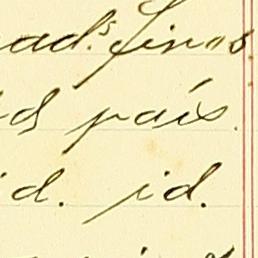 ad.s finos
país.
id. id.